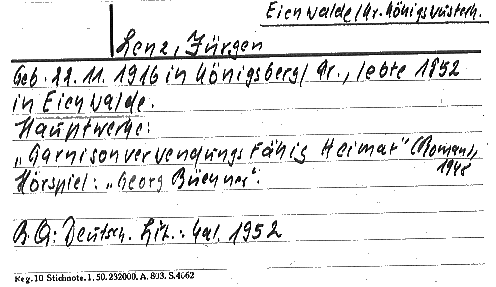 Eichwalde/Kr. Königswusterh.
Lenz, Jürgen
Geb. 22. 11. 1916 in Königsberg/Pr., lebte 1952
in Eichwalde.
Hauptwerke:
„Garnisonverwendungsfähig Heimat" (Roman),
1948
Hörspiel: „Georg Büchner".
B.Q: Deutsch. Lit.-Kal. 1952
Reg. 10 Stichnote. 1. 50. 232000. A. 803. S. 4662